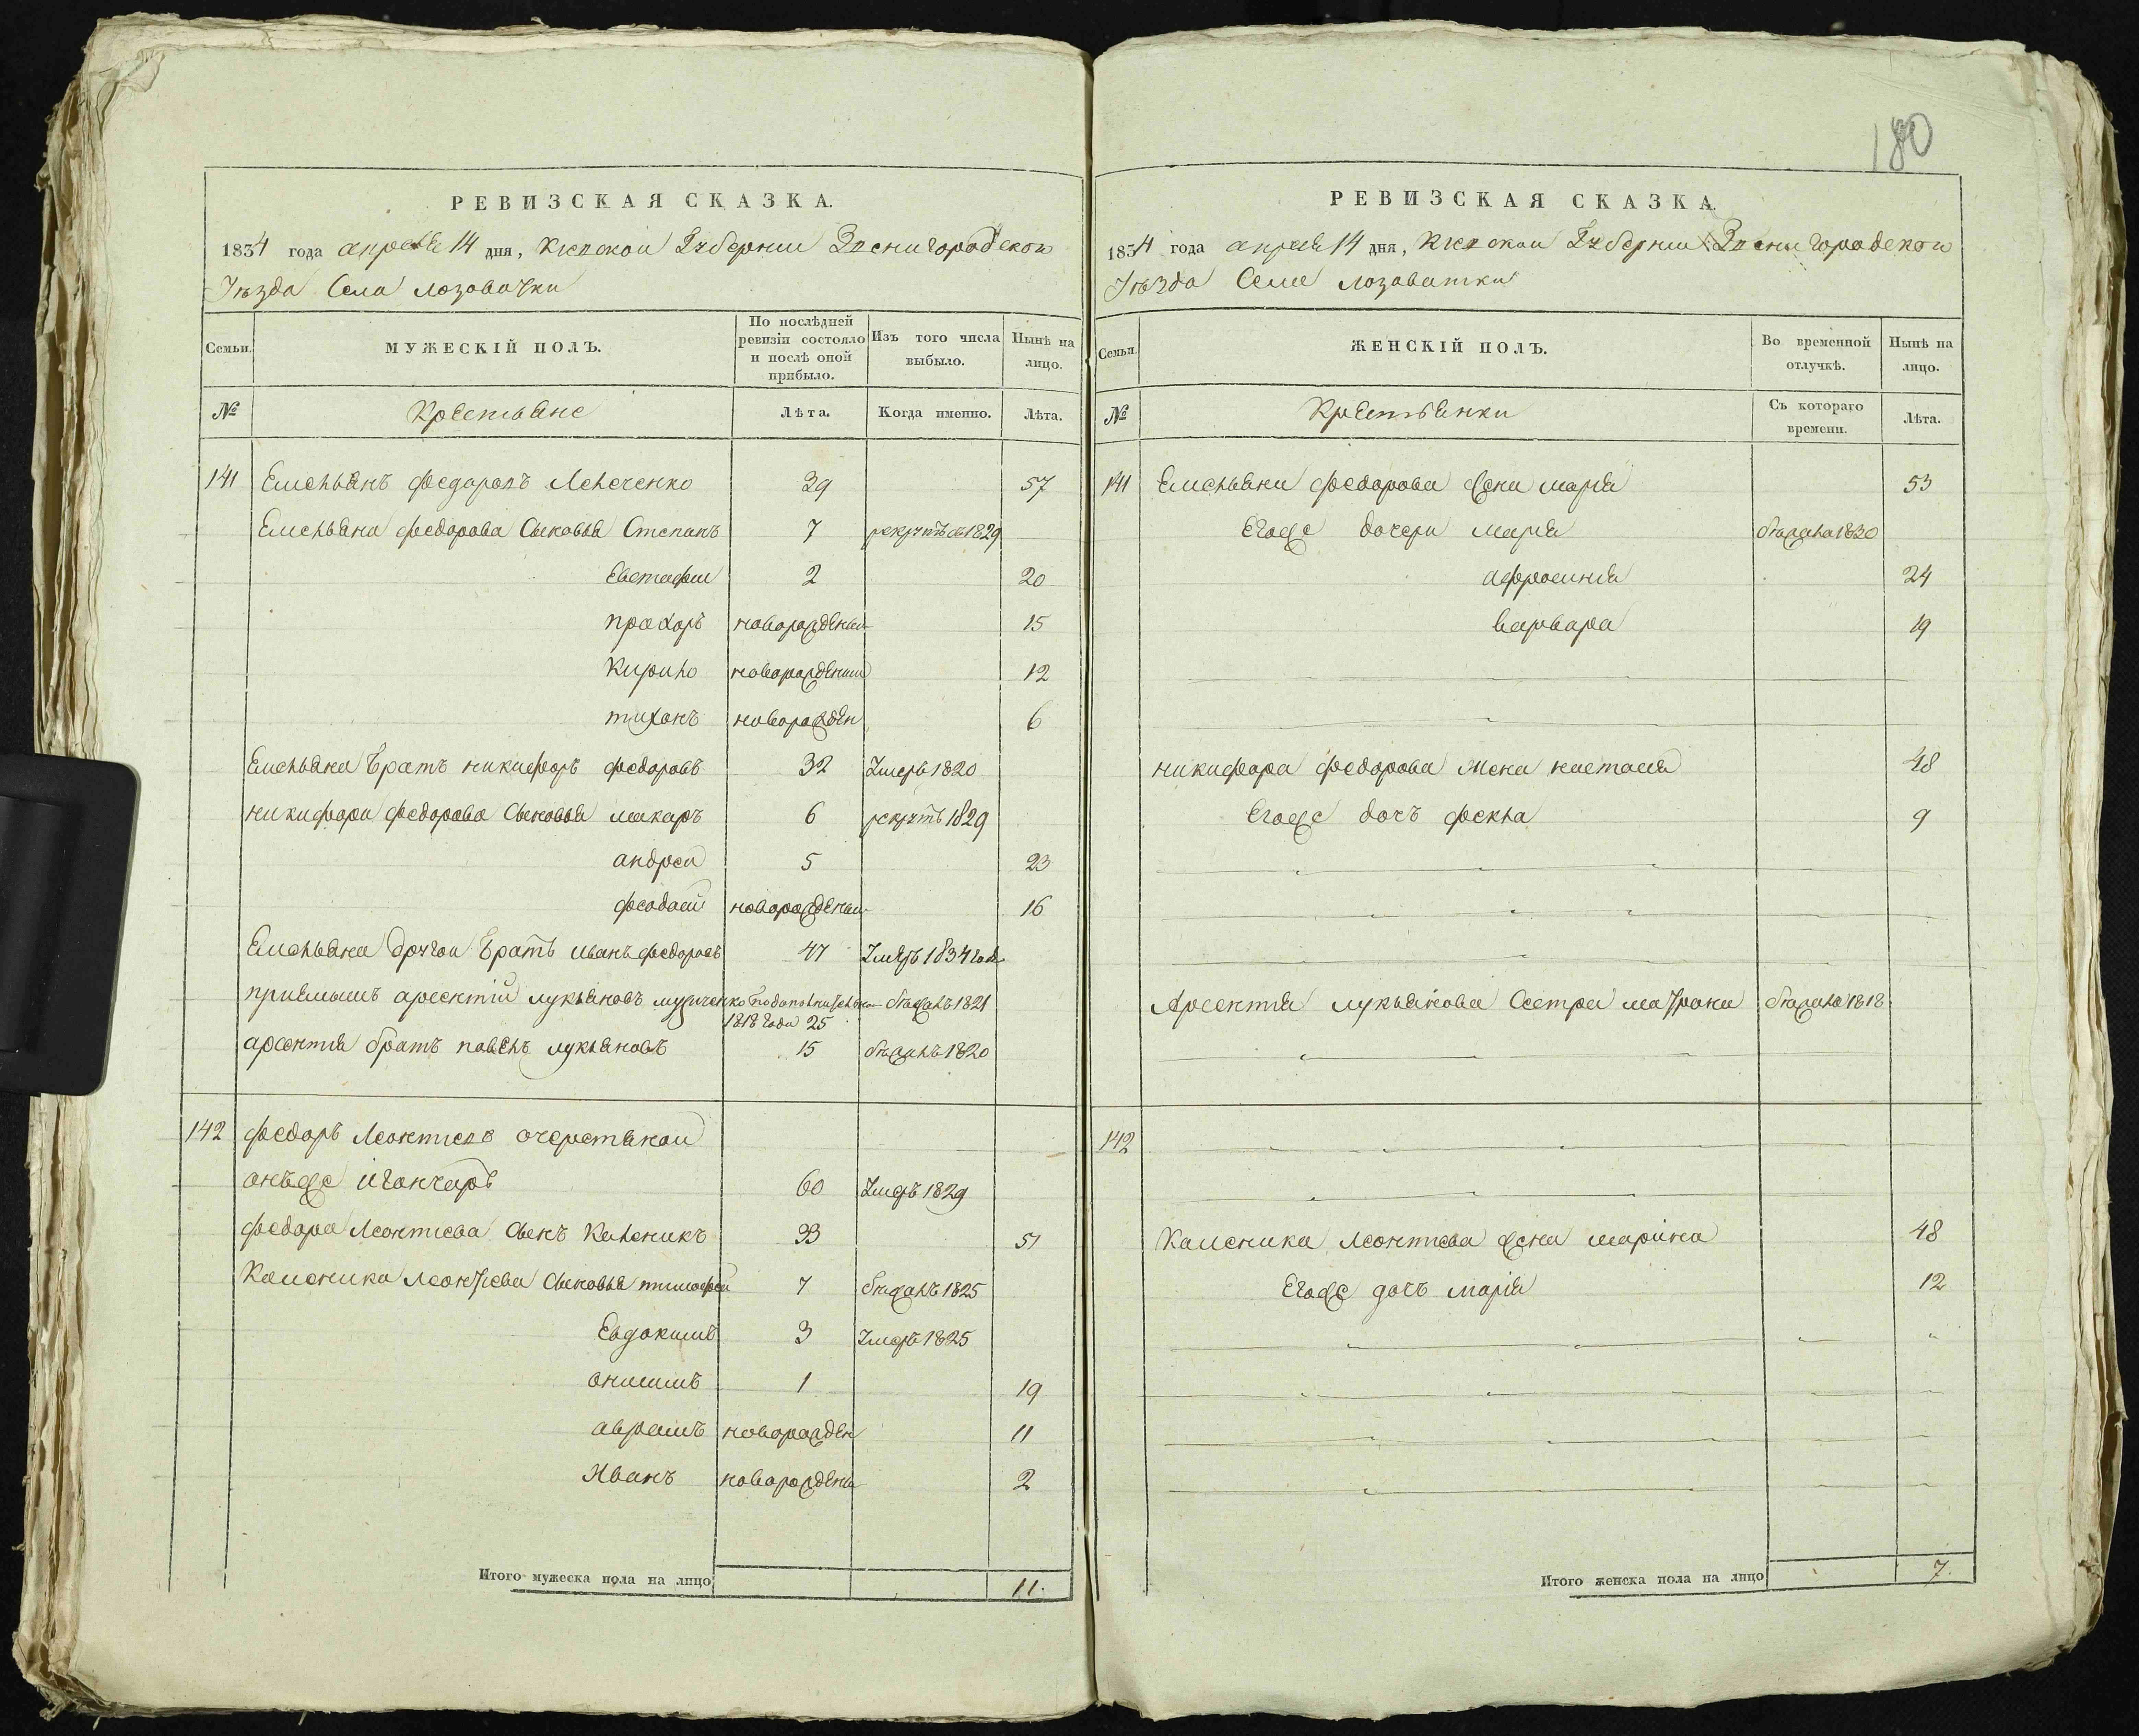 180
РЕВИЗСКАЯ СКАЗКА.
1834 года апреля 14 дня, Киевской Губернии Звенигородского
Уезда Села лозоватки
Семьи. МУЖЕСКІЙ ПОЛЪ. По послѣдней ревизіи состояло и послѣ оной прибыло. Изъ того числа выбыло. Нынѣ на лицо.
№ Крестьяне Лѣта. Когда именно. Лѣта.
141 Емельянъ федоровъ 39 57
Емельяна федорова Сыновья Степанъ 7 рекрутъ въ 1829
Евстафии 2 20
прохоръ новорожденыи 15
Кирило новорожденыи 12
тихонъ новорожден 6
Емельяна братъ никифоръ федоровъ 32 Умеръ 1820
никифора федорова Сыновья макаръ 6 рекрутъ 1829
андреи 5 23
феодосіи новорожденыи 16
Емельяна другои братъ иванъ федоровъ 47 Умеръ 1834 года
приемышъ арсентіи лукьяновъ бѣжалъ 1821
1818 года 25
арсентия братъ павелъ лукьяновъ 15 бѣжалъ 1820
142 федоръ Леонтиевъ очеретянои
онъже и гончаръ 60 Умеръ 1829
федора Леонтиева Сынъ Каленикъ 33 51
Каленика Леонтиева Сыновья тимофеи 7 бѣжалъ 1825
Евдокимъ 3 Умеръ 1825
онисимъ 1 19
аврамъ новорожден 11
Иванъ новорожденыи 2
Итого мужеска пола на лицо 11.
РЕВИЗСКАЯ СКАЗКА.
1834 года апреля 14 дня, Киевскои Губернии Звенигородского
Уезда Села лозоватки
Семьи. ЖЕНСКІЙ ПОЛЪ. Во временной отлучкѣ. Нынѣ на лицо.
№ Крестьянки Съ котораго времени. Лѣта.
141 Емельяна федорова жена марія 53
Егоже дочери мария бѣжала 1830
афросиния 24
варвара 19
никифора федорова жена настасия 48
Егоже дочъ фекла 9
Арсентия лукьянова Сестра матрона бѣжала 1818
142
Каленика Леонтиева жена марина 48
Егоже дочъ марія 12
Итого женска пола на лицо 7.